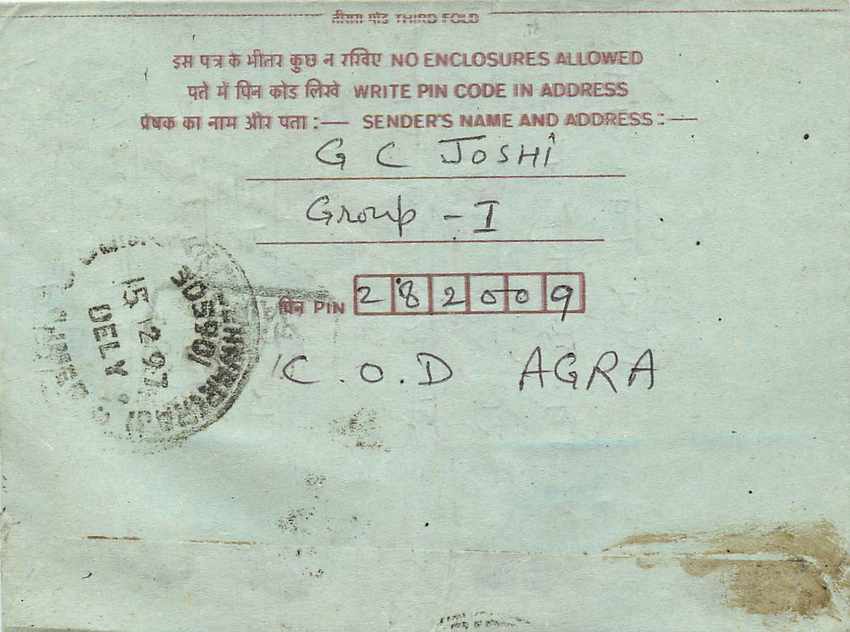 तीसरा मोड़ THIRD FOLD
इस पत्र के भीतर कुछ न रखिए NO ENCLOSURES ALLOWED
पते में पिन कोड लिखें WRITE PIN CODE IN ADDRESS
प्रेषक का नाम और पता :— SENDER'S NAME AND ADDRESS :—
G C JOSHI
Group - I
पिन PIN 282009
C.O.D AGRA
305901
15 12 97
DELY